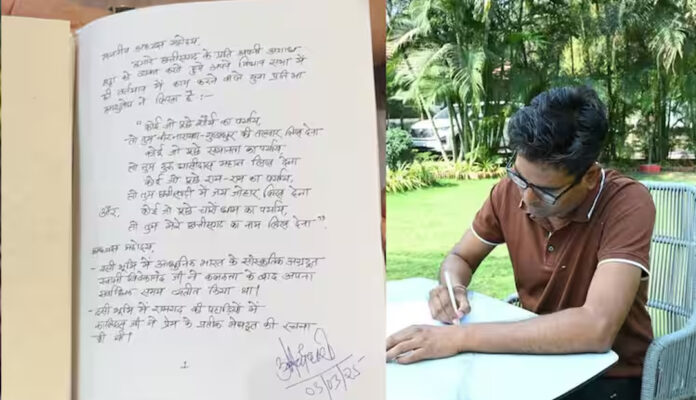 माननीय अध्यक्ष महोदय,
हमारे छत्तीसगढ़ के प्रति अपनी अगाध
श्रद्धा को व्यक्त करते हुये हमारे विधान सभा में
ही वर्तमान में काम करने वाले युवा प्रतिभा
ने लिखा है:-
"कोई जो पूछे शौर्य का पर्याय,
तो तुम वीर नारायण-गुण्डाधूर की तलवार लिख देना
कोई जो पूछे समानता का पर्याय,
तो तुम गुरु घासीदास महान लिख देना
कोई जो पूछे राम-राम का पर्याय,
तो तुम छत्तीसगढ़ी में जय जोहार लिख देना
और, कोई जो पूछे चारों धाम का पर्याय,
तो तुम मेरे छत्तीसगढ़ का नाम लिख देना"
अध्यक्ष महोदय,
- इसी भूमि में आधुनिक भारत के सांस्कृतिक अग्रदूत
स्वामी विवेकानंद जी ने कलकत्ता के बाद अपना
सर्वाधिक समय व्यतीत किया था।
- इसी भूमि में रामगढ़ की पहाड़ियों में
कालिदास जी ने प्रेम के प्रतीक मेघदूत की रचना
की थी।
1
03/03/25